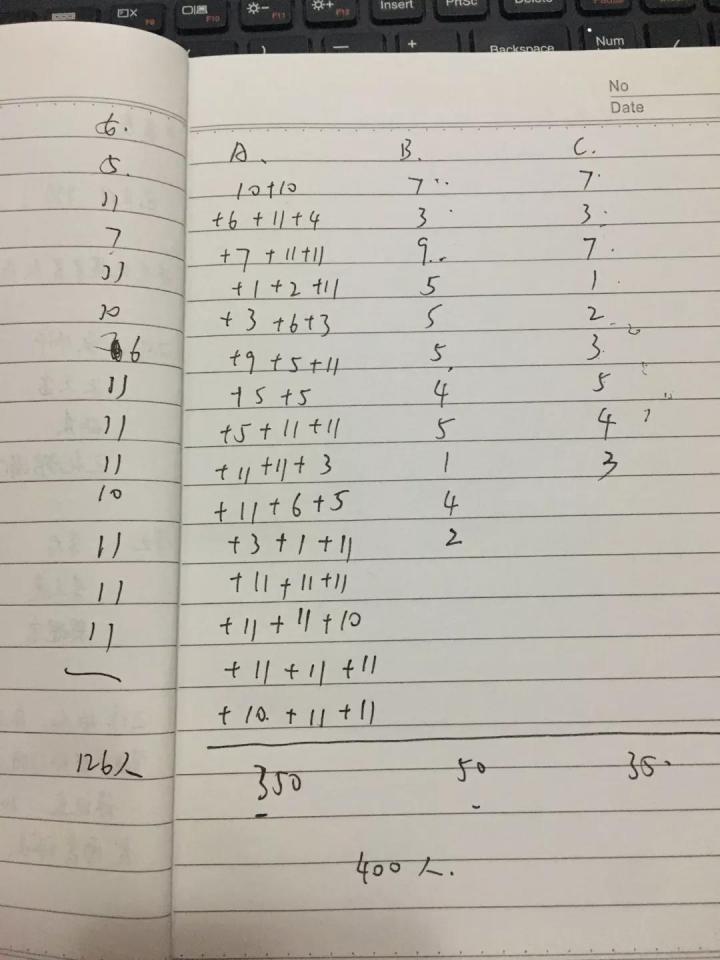 Insert PrtSc Delete Pause
F9 F10 F11 F12
Backspace Num
No
Date
6.
5.
11
7
11
10
6
11
11
11
10
11
11
11
126人
A. B. C.
10+10 7 7
+6+11+4 3 3
+7+11+11 9 7
+1+2+11 5 1
+3+6+3 5 2
+9+5+11 5 3
+5+5 4 5
+5+11+11 5 4
+11+11+3 1 3
+11+6+5 4
+3+1+11 2
+11+11+11
+11+11+10
+11+11+11
+10+11+11
350 50 35
400人.